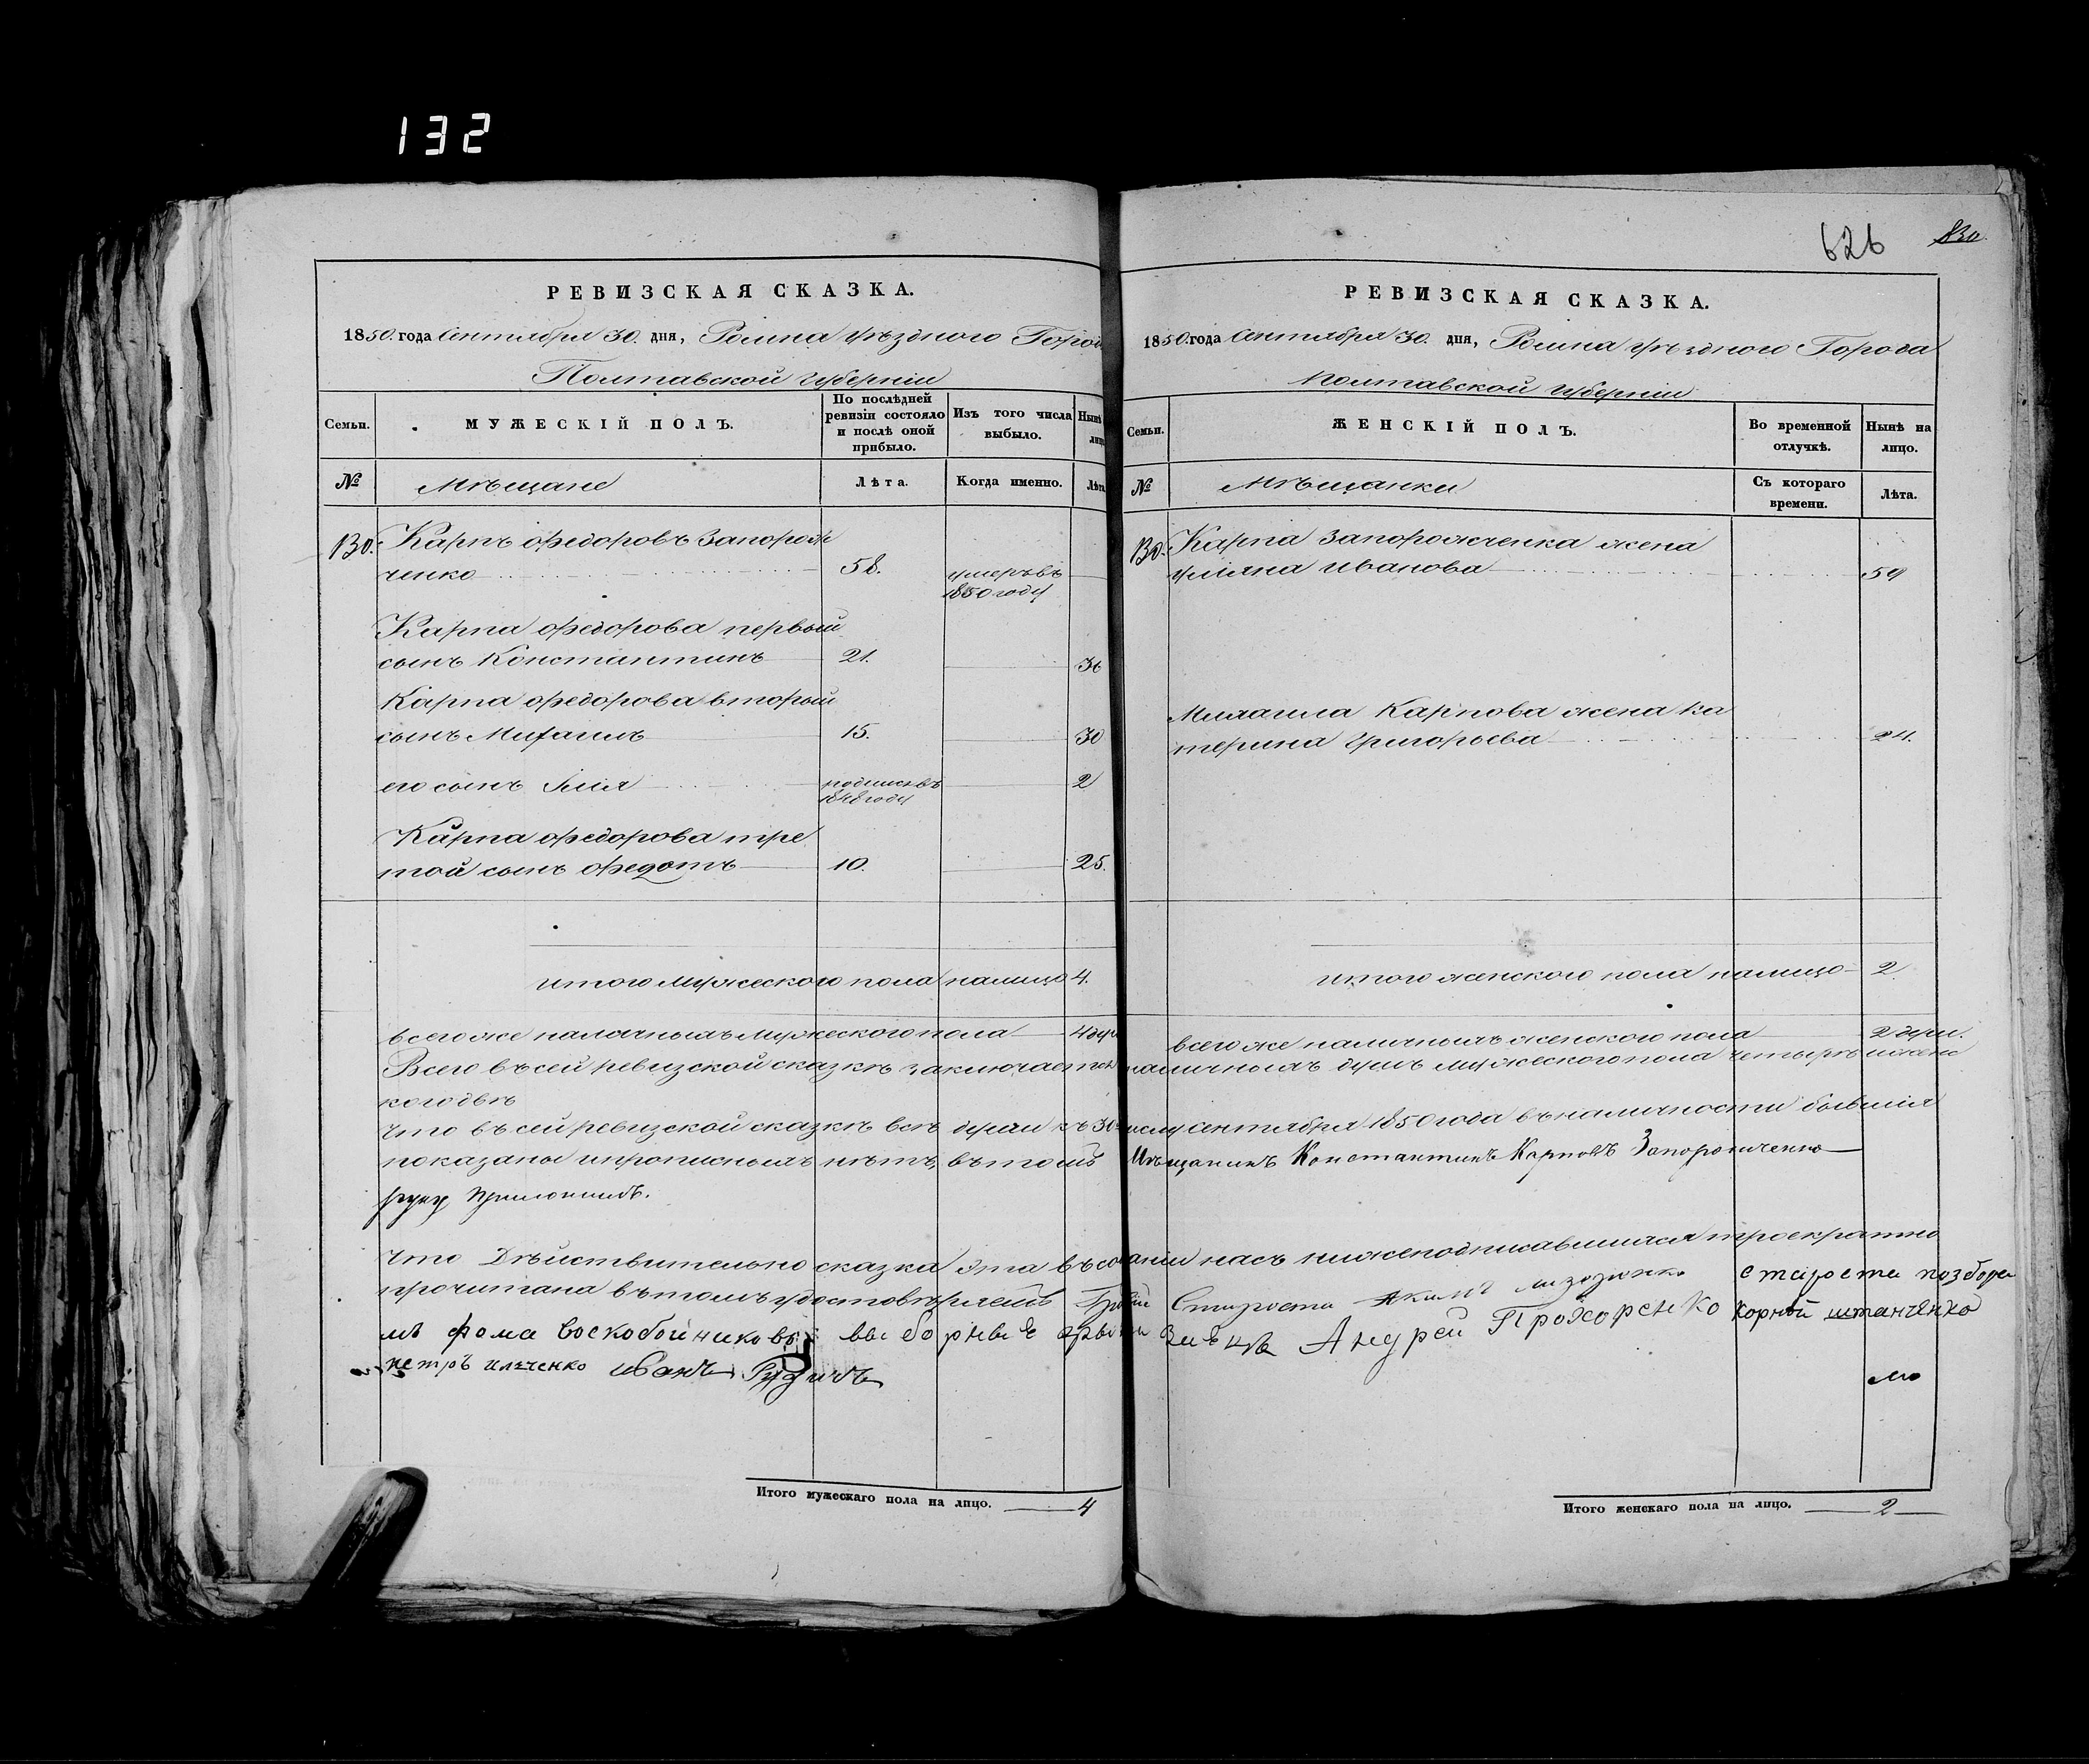 132
РЕВИЗСКАЯ СКАЗКА.
1850. года Сентября 30. дня, Ромна Уѣзднаго Город
Полтавской Губерніи
Семьи.
МУЖЕСКІЙ ПОЛЪ.
По послѣдней ревизіи состояло и послѣ оной прибыло.
Изъ того числа выбыло.
Нынѣ
лиц
№
Мѣщане
Лѣта.
Когда именно.
Лѣта
130.
Карпъ Федоровъ Запорож
ченко 58. умеръ въ
1850 году
Карпа Федорова первый
сынъ Константинъ 21. 36
Карпа Федорова вторый
сынъ Михаилъ 15. 30
его сынъ Илія родился въ 2
1848 году
Карпа Федорова тре
той сынъ Федотъ 10. 25.
итого мужеского пола налицо 4.
всего же наличныхъ мужеского пола 4 душ
626
830
РЕВИЗСКАЯ СКАЗКА.
1850. года Сентября 30. дня, Ромна Уѣзднаго Города
Полтавской Губерніи
Семьи.
ЖЕНСКІЙ ПОЛЪ.
Во временной отлучкѣ.
Нынѣ на лицо.
№
Мѣщанки
Съ котораго времени.
Лѣта.
130.
Карпа Запорожченка жена
Уліяна Иванова 59
Михаила Карпова жена Ка
терина Григорьева 24.
итого женского пола налицо 2
всего же наличныхъ женского пола 2 души.
Всего въ сей ревизской сказкѣ заключается наличныхъ душъ мужеского пола четыре и женс
кого двѣ
Что въ сей ревизской сказкѣ всѣ души къ 30 числу Сентября 1850 года въ наличности бывшія
показаны и прописныхъ нѣтъ, въ томъ Мѣщанинъ Константинъ Карповъ Запорожченко
руку приложилъ.
Что Дѣйствительно сказка эта въ собраніи насъ нижеподписавшихся троекратно
прочитана въ томъ удостовѣряемъ Староста староста
Фома Воскобойниковъ выборные Андрей Прохоренко
петръ иляченко иванъ
Итого мужескаго пола на лицо. 4
Итого женскаго пола на лицо. 2